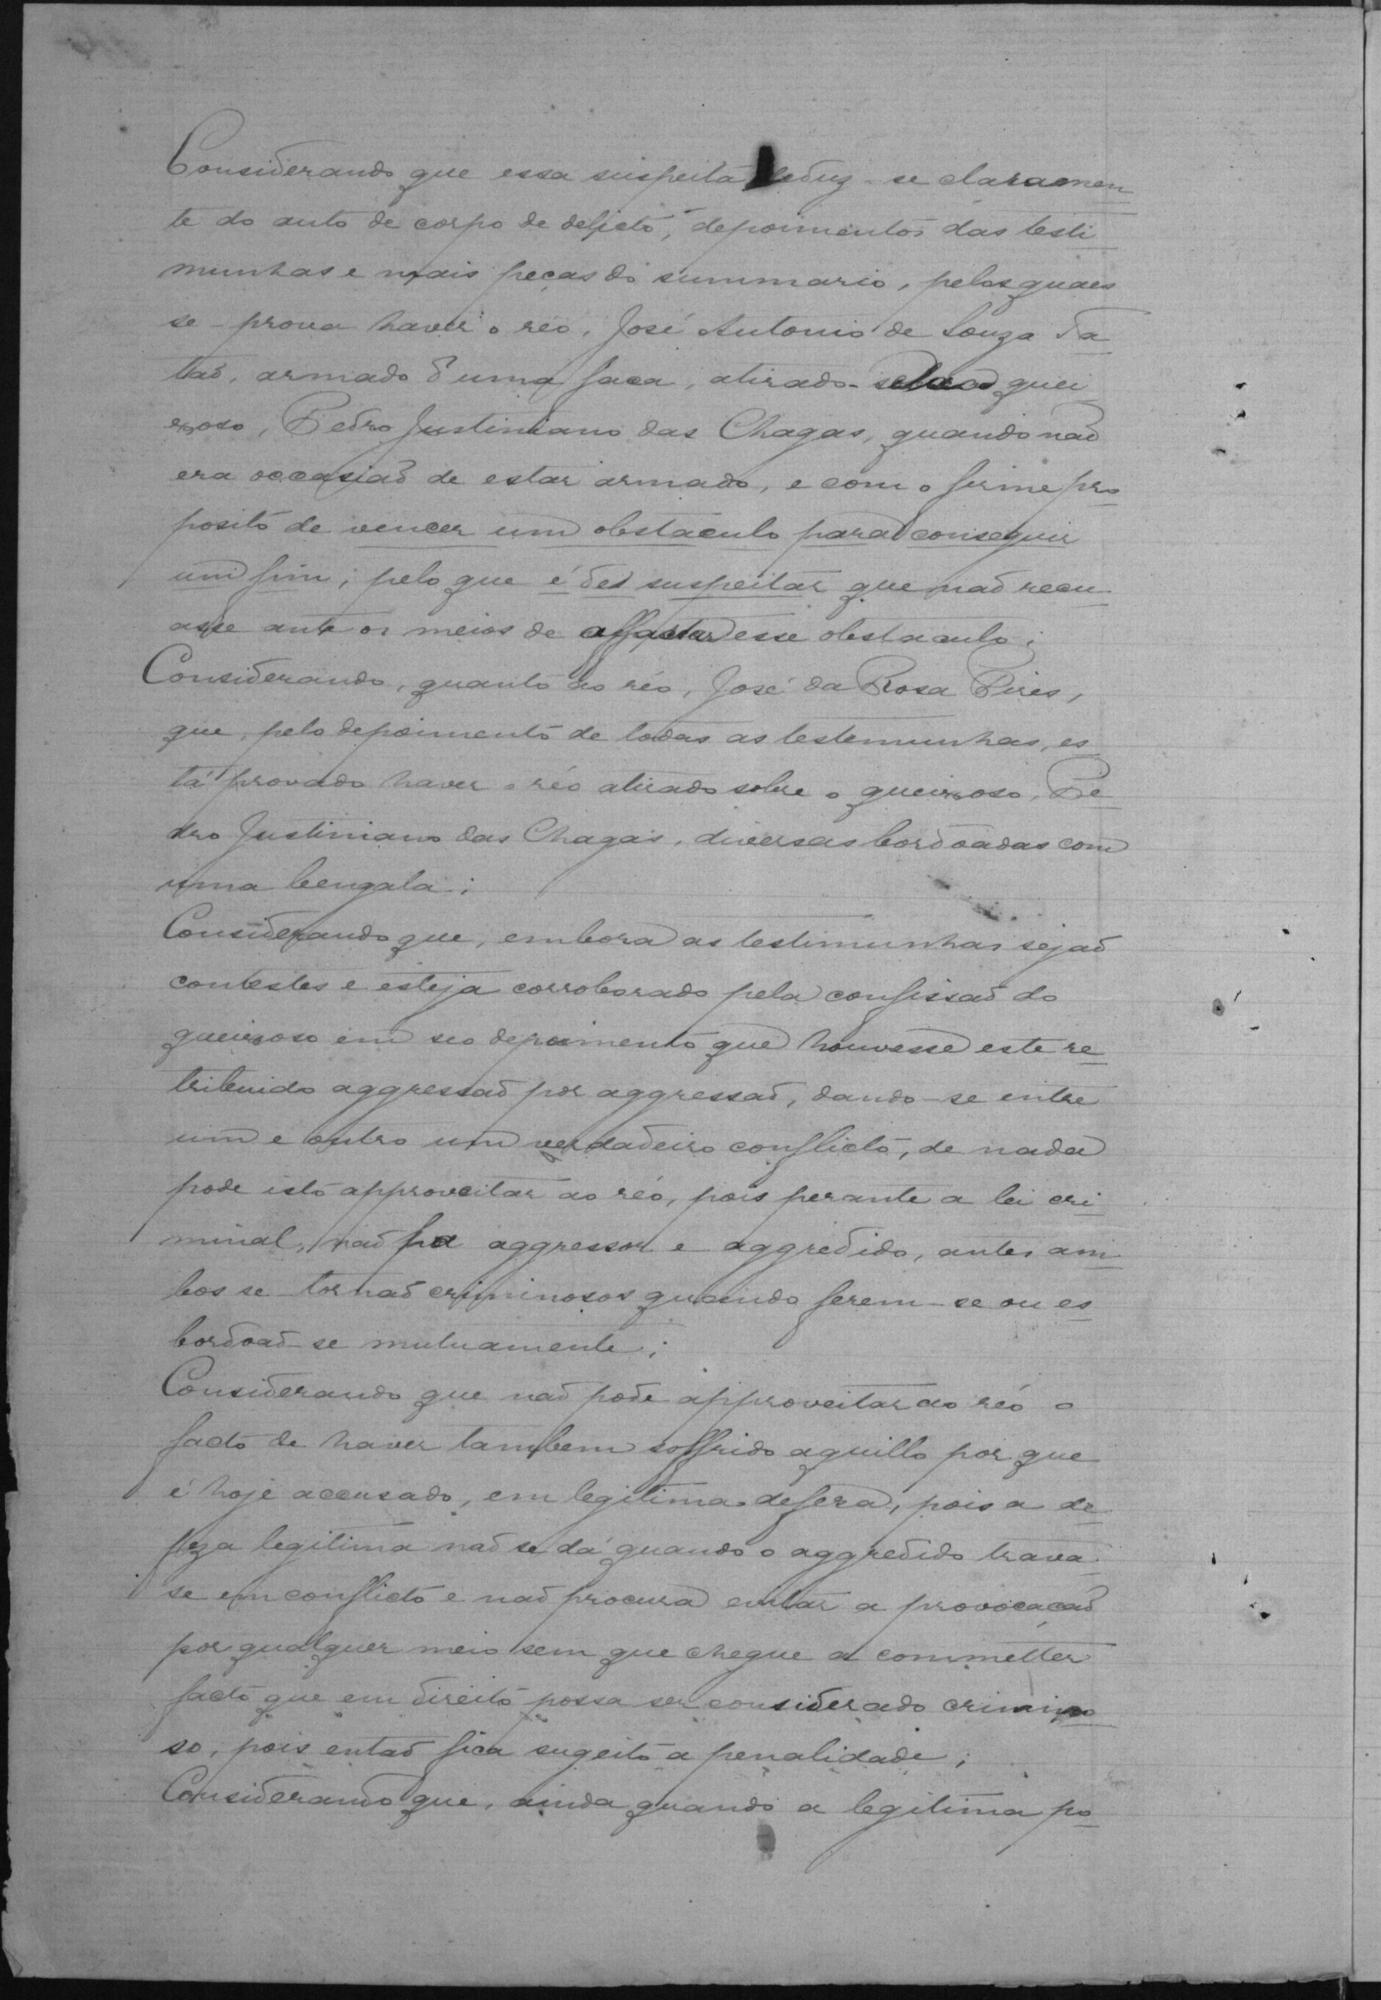 Considerando que essa suspeita deduz-se claramen
te do auto de corpo de delicto, depoimentos das testi
munhas e mais peças do summario, pelas quaes
se prova haver o réo, José Antonio de Souza
armado d'uma faca, atirado-se quei
xoso, Pedro Justiniano das Chagas, quando naõ
era occasiaõ de estar armado, e com o firme pro
posito de vencer um obstaculo para conseguir
um fim; pelo que é de suspeitar que naõ recu
asse ante os meios de affastar esse obstaculo;
Considerando, quanto ao réo, José da Rosa Pires,
que, pelo depoimento de todas as testemunhas, es
tá provado haver o réo atirado sobre o queixoso, Pe
dro Justiniano das Chagas, diversas bordoadas com
uma bengala;
Considerando que, embora as testimunhas sejaõ
contestes e esteja corroborado pela confissaõ do
queixoso em seo depoimento que houvesse este re
tribuido aggressaõ por aggressaõ, dando-se entre
um e outro um verdadeiro conflicto, de nada
pode isto approveitar ao réo, pois perante a lei cri
minal, naõ ha aggressor e aggredido, antes am
bos se tornaõ criminosos quando ferem-se ou es
bordoaõ-se mutuamente;
Considerando que naõ pode approveitar ao réo o
facto de haver tambem soffrido aquillo por que
é hoje accusado, em legitima defesa, pois a de
feza legitima naõ se dá quando o aggredido trava
se em conflicto e naõ procura evitar a provocaçaõ
por qualquer meio sem que chegue a commetter
facto que em direito possa ser considerado crimino
so, pois entaõ fica sugeito a penalidade;
Considerando que, ainda quando a legitima po